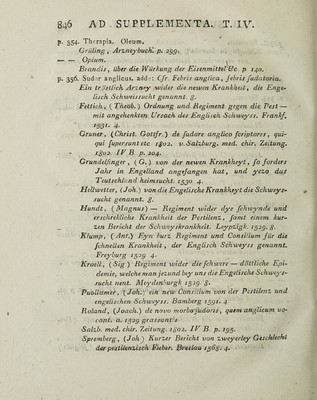 846 AD SUPPLEMENTA. T. IV.
p. 354. Therapia. Oleum.
Grüling, Arzneybuch. p. 299.
— — Opium.
Brandis, über die Würkung der Eisenmittel &c p 140.
p. 356. Sudor anglicus. add.: Cfr. Febris anglica, febris sudatoria.
Ein tröstlich Arzney wider die newen Krankheit, die Enge-
lisch Schweissucht genannt. 8.
Fettich, (Theob.) Ordnung und Regiment gegen die Pest —
mit angehenkten Ursach des Englisch Schweyss. Frankf,
1531. 4.
Gruner, (Christ. Gottfr.) de sudore anglico scriptores, qui-
qui supersunt etc 1802. v. Salzburg. med. chir. Zeitung.
1802. IV B p. 204.
Grundelfinger, (G.) von der newen Krankheyt, so forders
Jahr in Engelland angefangen hat, und yezo das
Teutschland heimsucht. 1530. 4.
Hellwetter, (Joh.) von die Engelische Krankheyt die Schweys-
sucht genannt. 8.
Hundt, (Magnus) — Regiment wider dye schwynde und
erschrekliche Krankheit der Pestilenz, samt einem kur-
zen Bericht der Schweyskrankheit. Leypzigk. 1529. 8.
Klump, (Ant.) Eyn kurz Regiment und Consilium für die
schnellen Krankheit, der Englisch Schweyss genannt.
Freyburg 1529 4.
Kroell, (Sig) Regiment wider die schwere — döttliche Epi-
demie, welche man jezund bey uns die Engelische Schweys-
sucht nent. Meydenburgh 1529. 8.
Publiamer, (Joh.) ein new Consilium von der Pestilenz und
engelischen Schweyss. Bamberg 1591. 4
Roland, (Joach.) de novo morbo sudoris, quem anglicum vo-
cant. a. 1529 grassante
Salzb. med. chir. Zeitung. 1802. IV B p. 195.
Spremberg, (Joh) Kurzer Bericht von zweyerley Geschlecht
der pestilenzisch Fieber. Breslau 1565. 4.